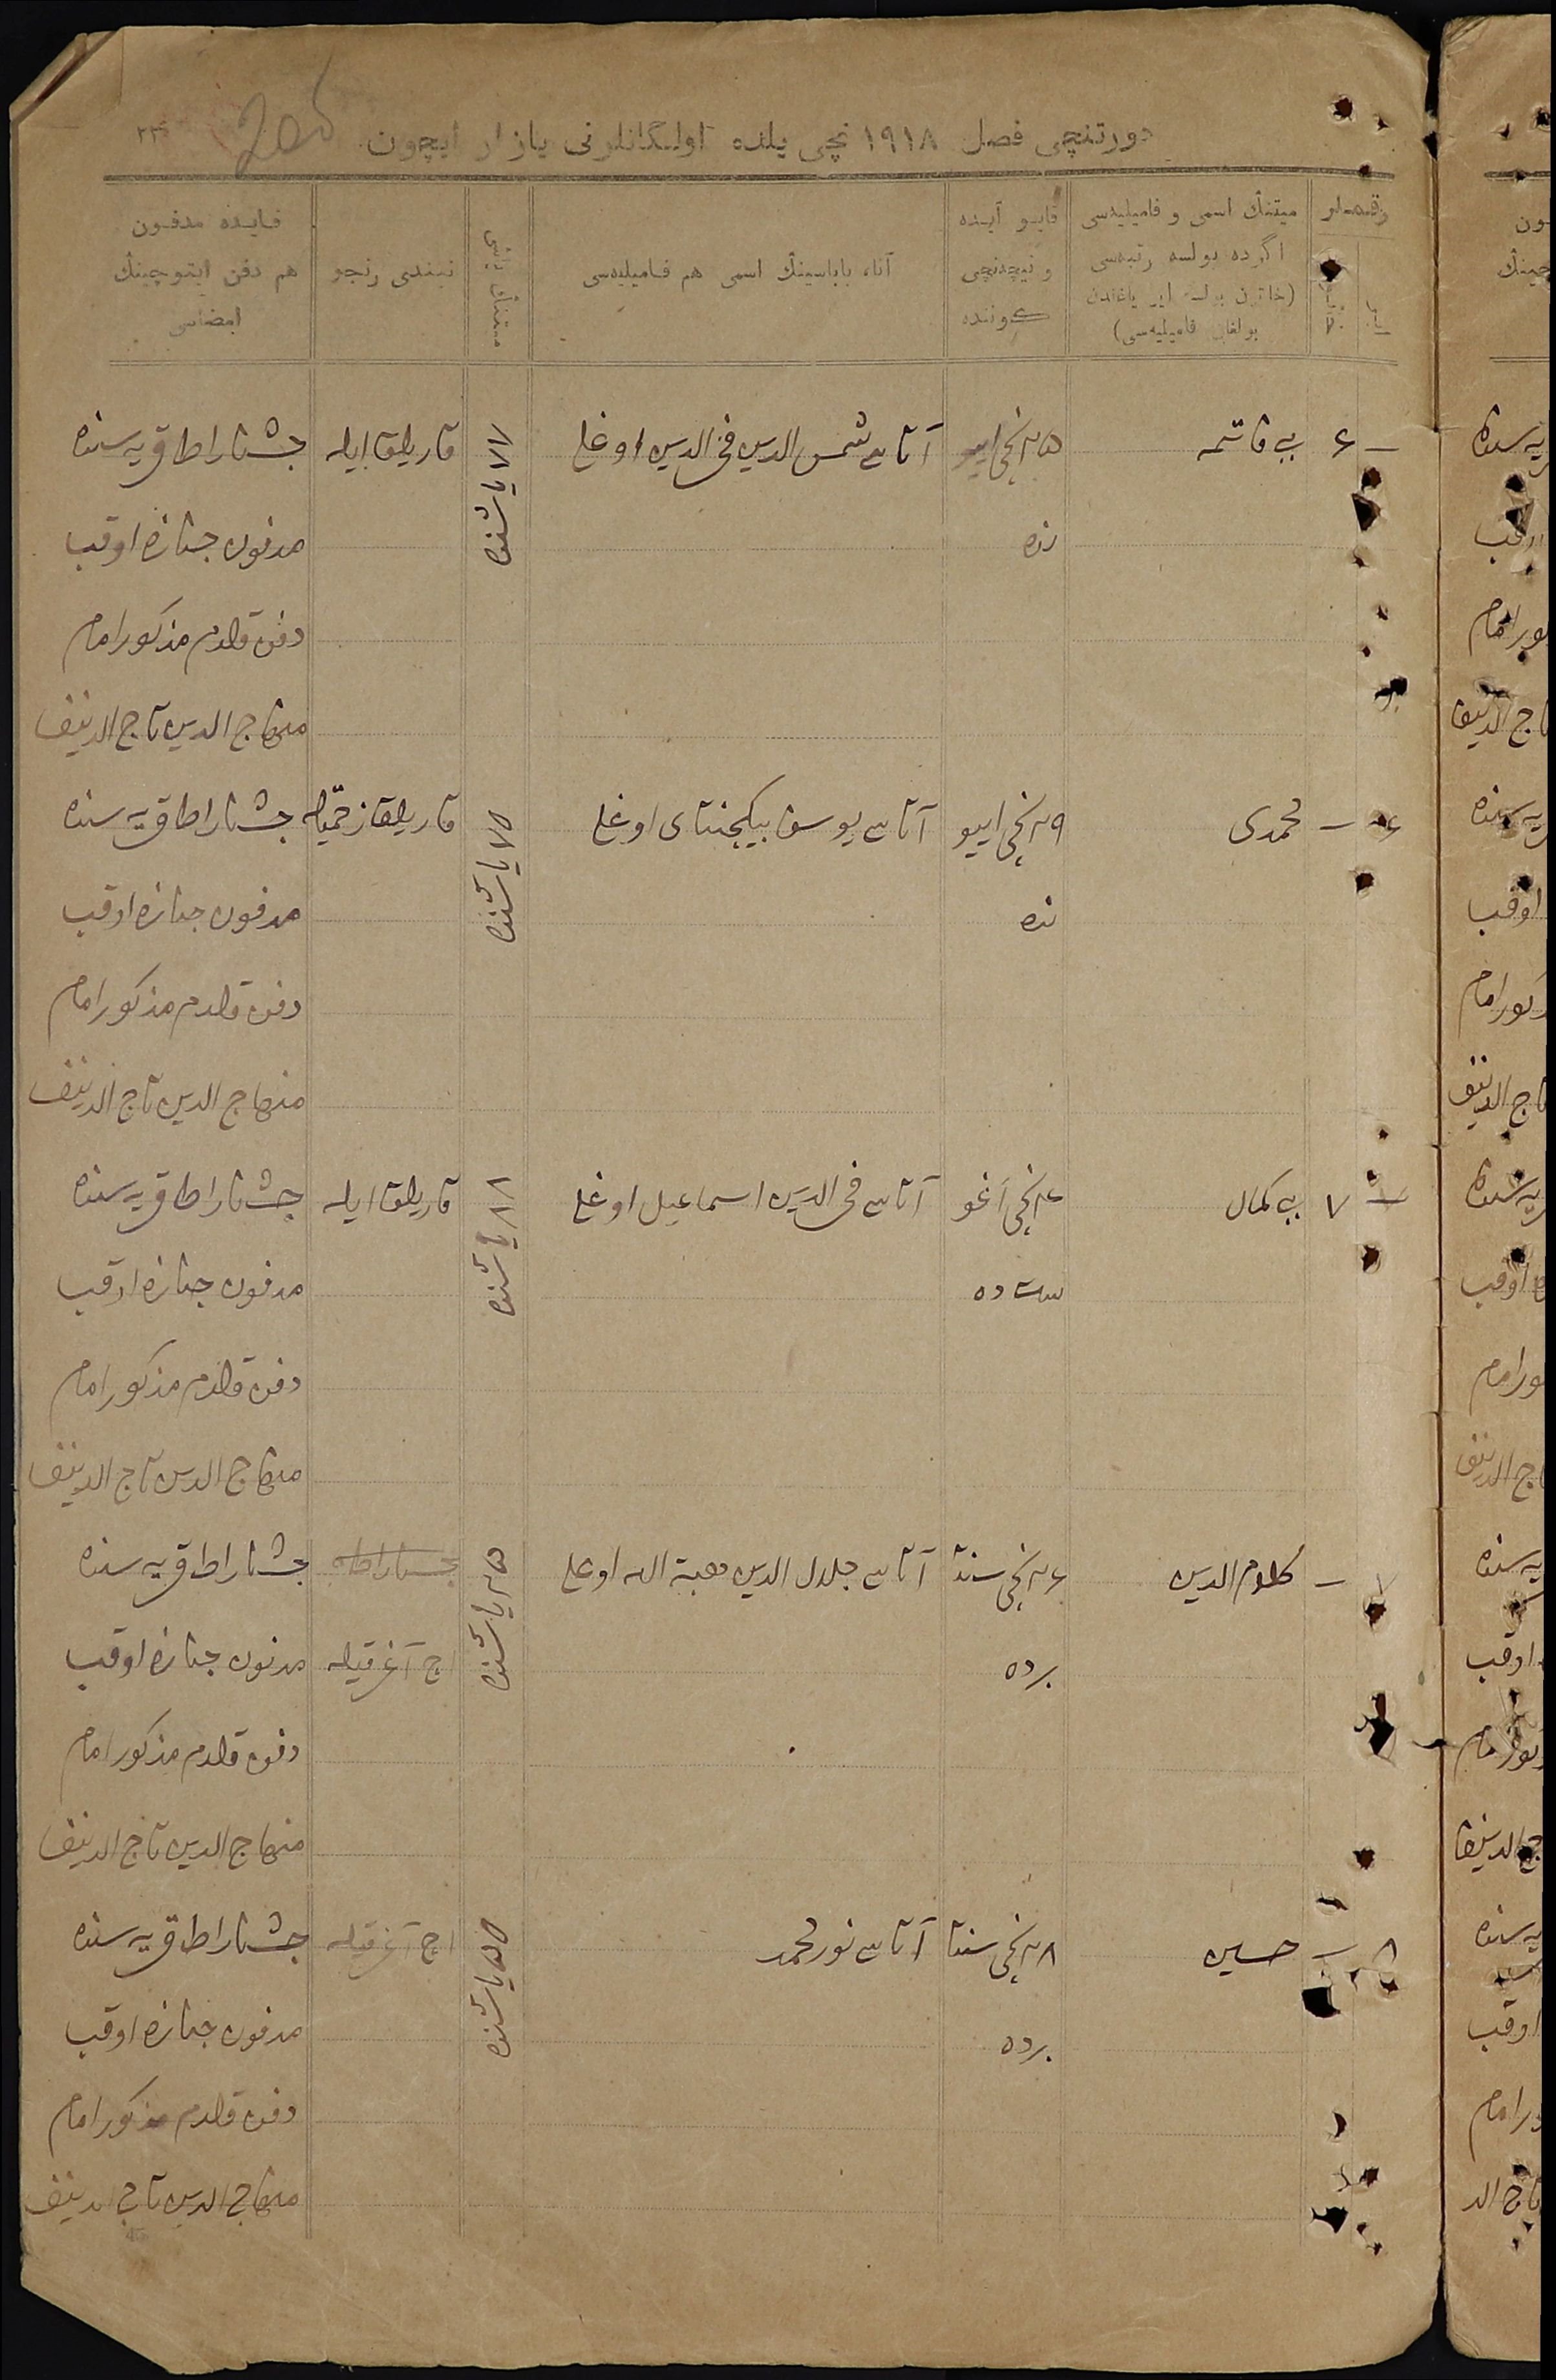 دورتنچی فصل ۱۹۱۸ نچی یلده اولگانلرنی یازار ایچون
205
رقملر
میتنڭ اسمی و فامیلیەسی
اگرده بولسه رتبەسی
(خاتون بولسه ایر یاغندن
بولغان فامیلیەسی)
قایو آیده
و نیچەنچی
کوننده
آتا، باباسینڭ اسمی هم فامیلیەسی
میتنڭ یاشی
نیندی رنجو
قایده مدفون
هم دفن ایتوچینڭ
امضاسی
۶ بی فاتمه
۲۵ نچی ایو
نده
آتاسی شمس الدین فخرالدین اوغلی
۷۷ یاشنده
قاریلق ایله
جشتاراط قریه سنده
مدفون جنازه اوقب
دفن قلدم مذکور امام
منهاج الدین تاج الدینف
۶ — محمدی
۲۹ نچی ایيو
نده
آتاسی یوسف بیکجنتای اوغلی
۷۵ یاشنده
قاریلق زحمتیله
جشتاراط قریه سنده
مدفون جنازه اوقب
دفن قلدم مذکور امام
منهاج الدین تاج الدینف
— ۷ بی کمال
نچی آغو
ست ده
آتاسی فخرالدین اسماعیل اوغلی
۸۸ یاشنده
قاریلق ایله
جشتاراط قریه سنده
مدفون جنازه اوقب
دفن قلدم مذکور امام
منهاج الدین تاج الدینف
۷ — کلام الدین
۲۶ نچی سنتا
برده
آتاسی جلال الدین هبة الله اوغلی
۲۵ یاشنده
اچ آغرقیله
جشتاراط قریه سنده
مدفون جنازه اوقب
دفن قلدم مذکور امام
منهاج الدین تاج الدینف
۸ — حسین
۲۸ نچی سنتا
برده
آتاسی نورمحمد
۵۵ یاشنده
اچ آغرقیله
جشتاراط قریه سنده
مدفون جنازه اوقب
دفن قلدم مذکور امام
منهاج الدین تاج الدینف